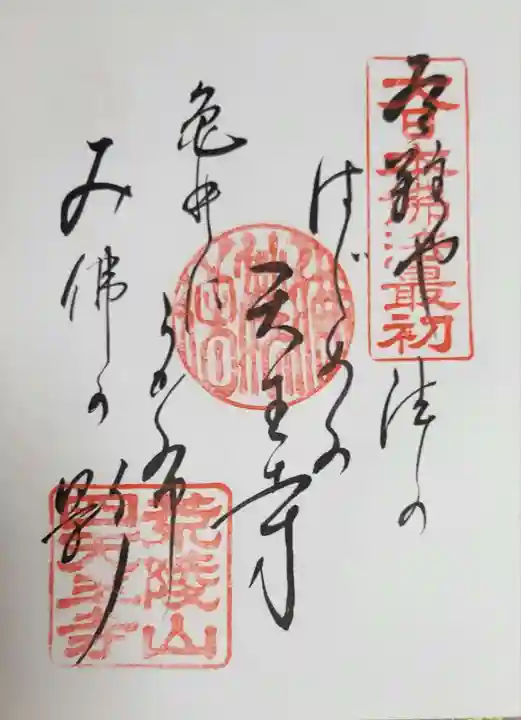 大日本佛法最初
有難や法の
はじめの
天王寺
亀井にうかふ
み佛の影
荒陵山
四天王寺